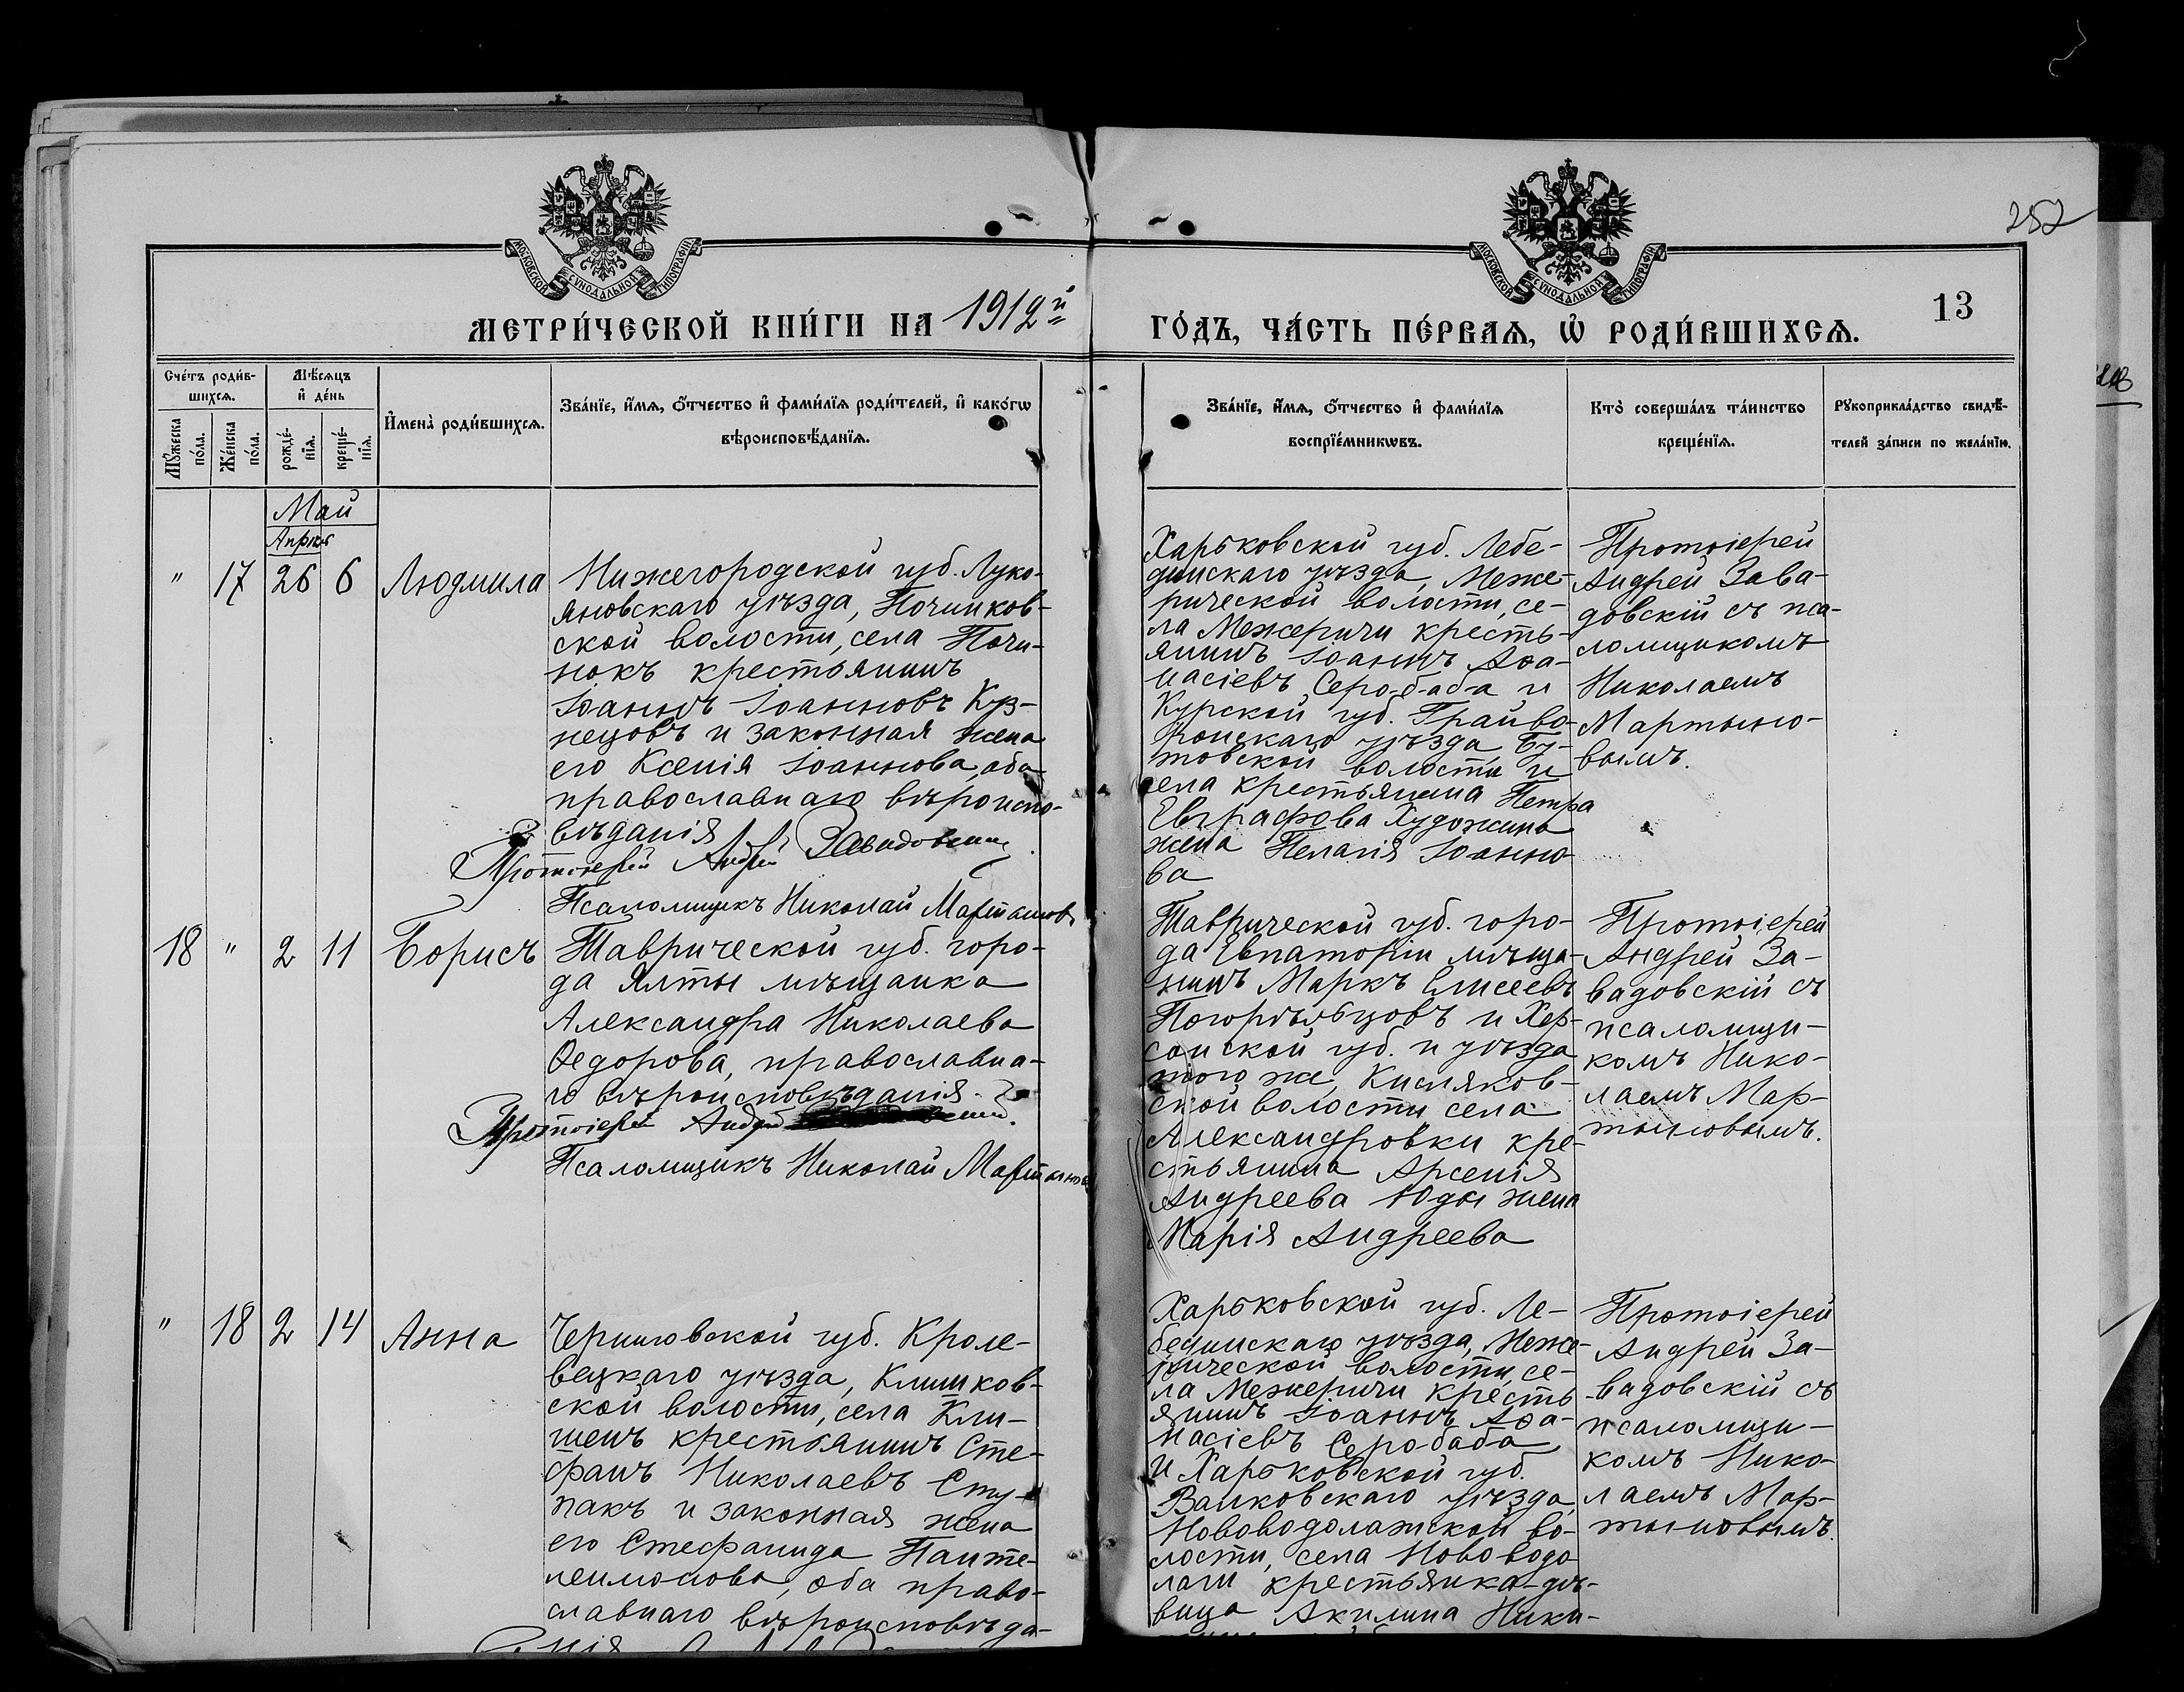 252
МОСКОВСКОЙ СѴНОДАЛЬНОЙ ТИПОГРАФІИ
МОСКОВСКОЙ СѴНОДАЛЬНОЙ ТИПОГРАФІИ
13
МЕТРИ́ЧЕСКОЙ КНИ́ГИ НА 1912й
ГО́ДЪ, ЧА́СТЬ ПЕ́РВАѦ, Ѡ҆ РОДИ́ВШИХСѦ.
Сче́тъ роди́в-
шихсѧ.
Мꙋ́жеска
по́ла.
Же́нска
по́ла.
Мѣ́сѧцъ
и҆ де́нь
рожде́-
нїѧ.
креще́-
нїѧ.
И҆мена̀ роди́вшихсѧ.
Зва́нїе, и҆́мѧ, ѻ҆́тчество и҆ фами́лїѧ роди́телей, и҆ како́гѡ
вѣроисповѣ́данїѧ.
Зва́нїе, и҆́мѧ, ѻ҆́тчество и҆ фами́лїѧ
воспрїе́мникѡвъ.
Кто̀ соверша́лъ та́инство
креще́нїѧ.
Рꙋкоприкла́дство свидѣ́-
телей за́писи по жела́нїю.
Май
Апрѣль
" 17 26 6
Людмила
Нижегородской губ. Луко-
яновскаго уѣзда, Починков-
ской волости, села Почи-
нокъ крестьянинъ
Іоаннъ Іоанновъ Куз-
нецовъ и законная жена
его Ксенія Іоаннова, оба
православнаго вѣроиспо-
вѣданія
Протоіерей Андрей Завадовскій
Псаломщикъ Николай Мартыновъ
Харьковской губ. Лебе-
динскаго уѣзда, Меже-
рической волости, се-
ла Межеричи кресть-
янинъ Іоаннъ Аѳа-
насіевъ Серобаба и
Курской губ. Грайво-
ронскаго уѣзда, Бу-
товской волости и
села крестьянина Петра
Евграфова Художина
жена Пелагія Іоанно-
ва
Протоіерей
Андрей Зава-
довскій съ пса-
ломщикомъ
Николаемъ
Мартыно-
вымъ.
18 " 2 11
Борисъ
Таврической губ. горо-
да Ялты мѣщанка
Александра Николаева
Ѳедорова, православна-
го вѣроисповѣданія.
Протоіерей Андрей
Псаломщикъ Николай Мартыновъ
Таврической губ. горо-
да Евпаторіи мѣща-
нинъ Маркъ Елисеевъ
Погорѣльцовъ и Хер-
сонской губ. и уѣзда
того же, Кисляков-
ской волости села
Александровки кре-
стьянина Арсенія
Андреева Юды жена
Марія Андреева
Протоіерей
Андрей За-
вадовскій съ
псаломщи-
комъ Нико-
лаемъ Мар-
тыновымъ.
" 18 2 14
Анна
Черниговской губ. Кроле-
вецкаго уѣзда, Клишков-
ской волости, села Кли-
шекъ крестьянинъ Сте-
фанъ Николаевъ Сту-
пакъ и законная жена
его Стефанида Панте-
леимонова, оба право-
славнаго вѣроисповѣда-
нія
Харьковской губ. Ле-
бединскаго уѣзда, Меже-
рической волости, се-
ла Межеричи кресть-
янинъ Іоаннъ Аѳа-
насіевъ Серобаба
и Харьковской губ.
Валковскаго уѣзда,
Нововодолажской во-
лости, села Нововодо-
лаги крестьянка-дѣ-
вица Акилина Ники-
Протоіерей
Андрей За-
вадовскій съ
псаломщи-
комъ Нико-
лаемъ Мар-
тыновымъ.